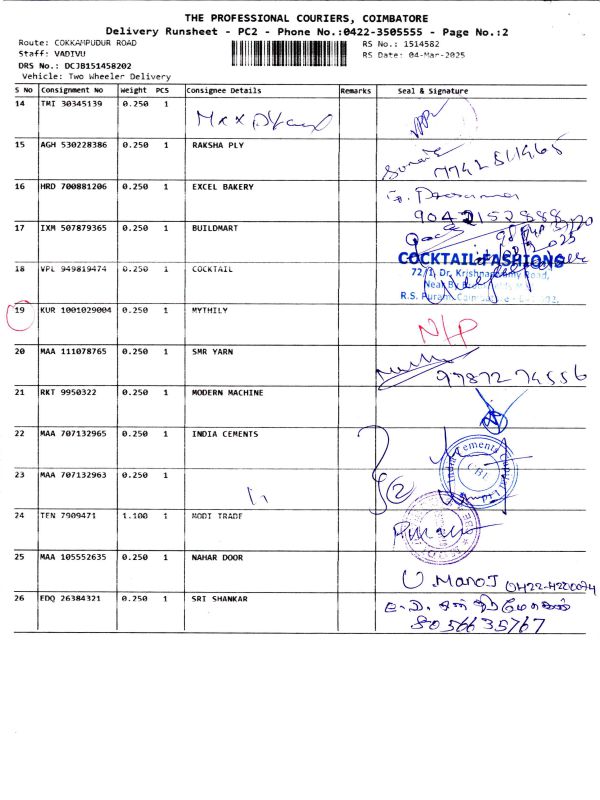 THE PROFESSIONAL COURIERS, COIMBATORE
Delivery Runsheet - PC2 - Phone No.:0422-3505555 - Page No.:2
Route: COKKAMPUDUR ROAD
RS No.: 1514582
Staff: VADIVU
RS Date: 04-Mar-2025
DRS No.: DCJB151458202
Vehicle: Two Wheeler Delivery
S No Consignment No Weight PCS Consignee Details Remarks Seal & Signature
14 TMI 30345139 0.250 1
15 AGH 530228386 0.250 1 RAKSHA PLY
16 HRD 700881206 0.250 1 EXCEL BAKERY
9042152888
17 IXM 507879365 0.250 1 BUILDMART
COCKTAIL FASHIONS
18 VPL 949819474 0.250 1 COCKTAIL
72/1, Dr. Krishnasamy Road,
R.S. Puram, Coimbatore
19 KUR 1001029004 0.250 1 MYTHILY
N/P
20 MAA 111078765 0.250 1 SMR YARN
97872 74556
21 RKT 9950322 0.250 1 MODERN MACHINE
22 MAA 707132965 0.250 1 INDIA CEMENTS
India Cements Capital Ltd
CBE
23 MAA 707132963 0.250 1
2
24 TEN 7909471 1.100 1 MODI TRADE
25 MAA 105552635 0.250 1 NAHAR DOOR
U. Manoj 0422-4200074
26 EDQ 26384321 0.250 1 SRI SHANKAR
8056635767